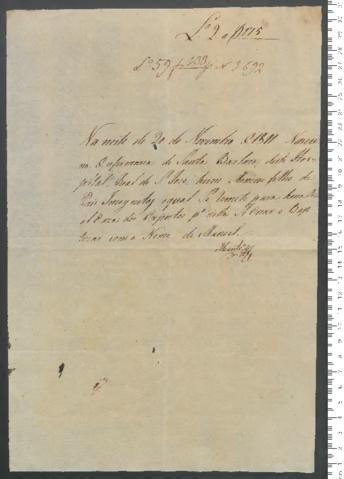 Lº 2 a f 175
Lº 59 f 233 Nº 3692
Na noite de 20 de Novembro de 1811 Nasceu
na Enfermaria de Santa Barbara, deste Hos-
pital Real de S. Joze, hum Menino filho de
Pais Incognitos, o qual se remete para a
el Caza dos Expostos pª nella se Criar e Bap-
tizar com o Nome de Manoel.